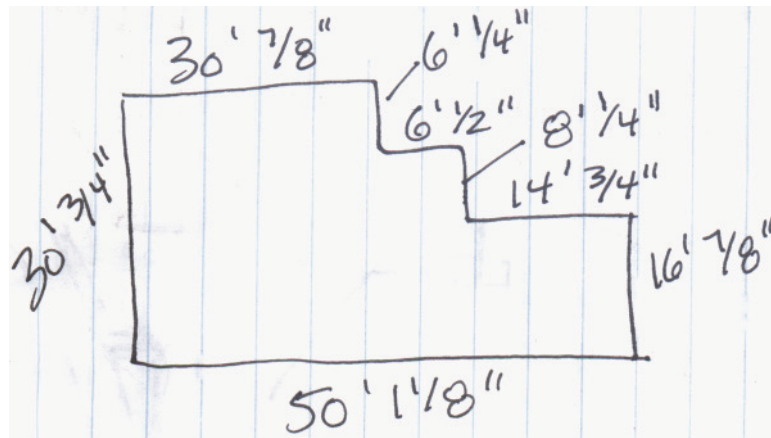 30' 7/8"
6' 1/4"
6' 1/2"
8' 1/4"
14' 3/4"
30' 3/4"
16' 7/8"
50' 1 1/8"